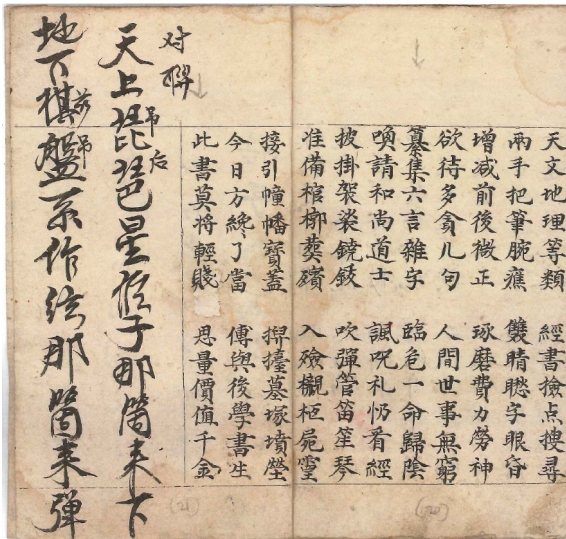 天文地理等類　經書撿点搜尋
兩手把筆腕　雙睛字眼昏
增减前後微正　琢磨費力勞神
欲待多貪几句　人間世事無窮
纂集六言雜字　臨危一命歸陰
喚請和尚道士　諷呪礼看經
披掛袈裟鐃鈸　吹彈管笛笙琴
准備棺槨葬殯　入殮櫬柩屍靈
接引幢幡寶蓋　擡墓塚墳塋
今日方纔了當　傳與後學書生
此書莫將輕賤　思量價值千金
对聯
天上琵琶星作子那箇来下
吊后
地下棋盤系作絃那箇来弹
吊
(20)
(21)